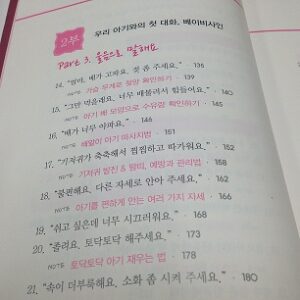 2부
우리 아기와의 첫 대화, 베이비사인
Part 3. 울음으로 말해요
14. "엄마, 배가 고파요. 젖 좀 주세요." · 136
NOTE 가슴 무게로 젖양 확인하기 · 139
15. "그만 먹을래요. 너무 배불러서 힘들어요." · 140
NOTE 아기 배 모양으로 수유량 확인하기 · 145
16. "배가 너무 아파요." · 146
NOTE 배앓이 아기 마사지법 · 151
17. "기저귀가 축축해서 찝찝하고 따가워요." · 152
NOTE 기저귀 발진 & 땀띠, 예방과 관리법 · 158
18. "불편해요. 다른 자세로 안아 주세요." · 162
NOTE 아기를 편하게 안는 여러 가지 자세 · 166
19. "쉬고 싶은데 너무 시끄러워요." · 168
20. "졸려요. 토닥토닥 해주세요." · 173
NOTE 토닥토닥 아기 재우는 법 · 178
21. "속이 더부룩해요. 소화 좀 시켜 주세요." · 180